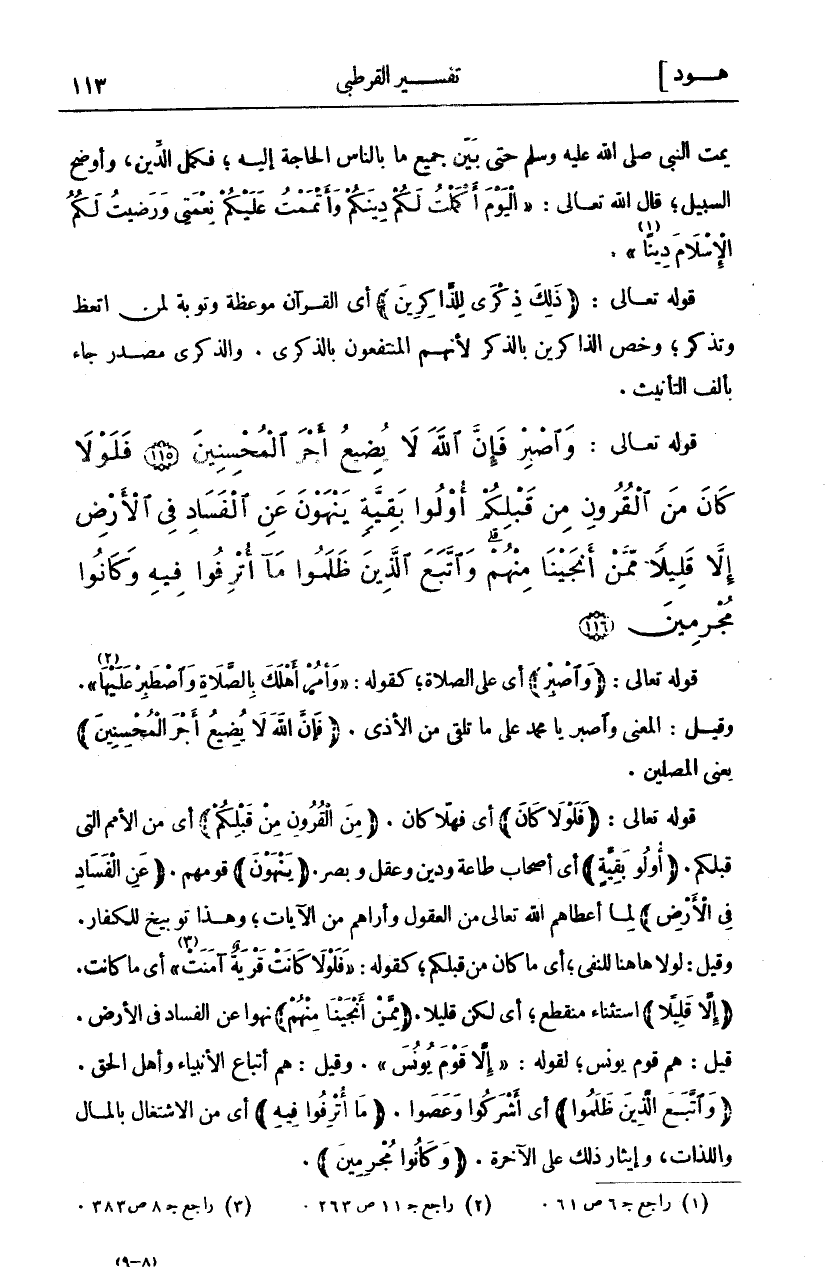 هـــود ] تفســــير القرطبى ١١٣
يمت النبى صلى الله عليه وسلم حتى بَيّن جميع ما بالناس الحاجة إليـه ؛ فـكمل الدِّين، وأوضح
السبيل؛ قال الله تعـالى : « الْيَوْمَ أَكْمَلْتُ لَكُمْ دِينَكُمْ وَأَتْمَمْتُ عَلَيْكُمْ نِعْمَتِى وَرَضِيتُ لَـكُمُ
الْإِسْلَامَ دِينًا(١) » .
قوله تعـالى : ﴿ ذَلِكَ ذِكْرَى لِلذَّاكِرِينَ ﴾ أى القـرآن موعظة وتوبة لمن اتعظ
وتذكر؛ وخص الذاكرين بالذكر لأنهـم المنتفعون بالذكرى . والذكرى مصـدر جاء
بألف التأنيث .
قوله تعـالى : وَٱصْبِرْ فَإِنَّ ٱللَّهَ لَا يُضِيعُ أَجْرَ ٱلْمُحْسِنِينَ ١١٥ فَلَوْلَا
كَانَ مِنَ ٱلْقُرُونِ مِن قَبْلِكُمْ أُوْلُوا بَقِيَّةٍ يَنْهَوْنَ عَنِ ٱلْفَسَادِ فِى ٱلْأَرْضِ
إِلَّا قَلِيلًا مِّمَّنْ أَنجَيْنَا مِنْهُمْ ۗ وَٱتَّبَعَ ٱلَّذِينَ ظَلَمُوا مَآ أُتْرِفُوا فِيهِ وَكَانُوا
مُجْرِمِينَ ١١٦
قوله تعالى : ﴿ وَٱصْبِرْ ﴾ أى على الصلاة؛ كقوله : «وَأْمُرْ أَهْلَكَ بِالصَّلَاةِ وَٱصْطَبِرْ عَلَيْهَا(٢)».
وقيـل : المعنى وٱصبر يا محمد على ما تلقى من الأذى . ﴿ فَإِنَّ اللَّهَ لَا يُضِيعُ أَجْرَ الْمُحْسِنِينَ ﴾
يعنى المصلين .
قوله تعالى : ﴿ فَلَوْلَا كَانَ ﴾ أى فهلّا كان . ﴿ مِنَ الْقُرُونِ مِنْ قَبْلِكُمْ ﴾ أى من الأمم التى
قبلكم. ﴿ أُولُو بَقِيَّةٍ ﴾ أى أصحاب طاعة ودين وعقل و بصر. ﴿ يَنْهَوْنَ ﴾ قومهم . ﴿ عَنِ الْفَسَادِ
فِى الْأَرْضِ ﴾ لِمـا أعطاهم الله تعالى من العقول وأراهم من الآيات ؛ وهـذا تو بيخ للكفار.
وقيل : لولا هاهنا للنفى ؛ أى ما كان من قبلكم؛ كقوله : «فَلَوْلَا كَانَتْ قَرْيَةٌ آمَنَتْ(٣)» أى ما كانت.
﴿ إِلَّا قَلِيلًا ﴾ استثناء منقطع؛ أى لكن قليلا. ﴿مِمَّنْ أَنْجَيْنَا مِنْهُمْ ﴾ نهوا عن الفساد فى الأرض .
قيل : هم قوم يونس؛ لقوله : « إِلَّا قَوْمَ يُونُسَ » . وقيل : هم أتباع الأنبياء وأهل الحق .
﴿ وَٱتَّبَعَ الَّذِينَ ظَلَمُوا ﴾ أى أَشْرَكُوا وَعَصَوا . ﴿ مَا أُتْرِفُوا فِيهِ ﴾ أى من الاشتغال بالمـال
واللذات، وإيثار ذلك على الآخرة . ﴿ وَكَانُوا مُجْرِمِينَ ﴾ .
(١) راجع جـ ٦ ص ٦١ . (٢) راجع جـ ١١ ص ٢٦٣ . (٣) راجع جـ ٨ ص ٣٨٣ .
(٨–٩)